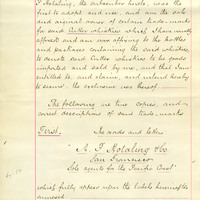 I Hotaling, the subscriber hereto, was the
first to adopt and use, and am the sole
and original owner of certain trade-marks
for said Cutter whiskies which I have usually
affixed and am now affixing to the bottles
and packages containing the said whiskies
to denote said Cutter whiskies to be goods
imported and sold by me, and that I am
entitled to, and claim, and intend hereby to
secure the exclusive use thereof
The following are true copies, and
correct descriptions of said trade-marks
First. The words and letters
"A. P. Hotaling & Co
San Francisco
Sole agents for the Pacific Coast"
which fully appear upon the labels hereunto
annexed